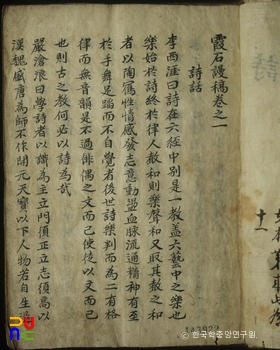 霞石謾稿卷之一
詩話
李西涯曰詩在六經中別是一教盖六藝中之樂也
樂始於詩終於律人教和則樂聲和又取其教之和
者以陶寫性情感發志意動盪血脉流通精神有至
於手舞足蹈而不自覺者後世詩樂判而為二有格
律而無音韻是不過俳偶之文而已使徒以文而已
也則古之教何必以詩為哉
嚴滄浪曰學詩者以識為主立門須正立志須高以
漢魏盛唐為師不作開元天寶以下人物若自生退
韓國學中央研究院